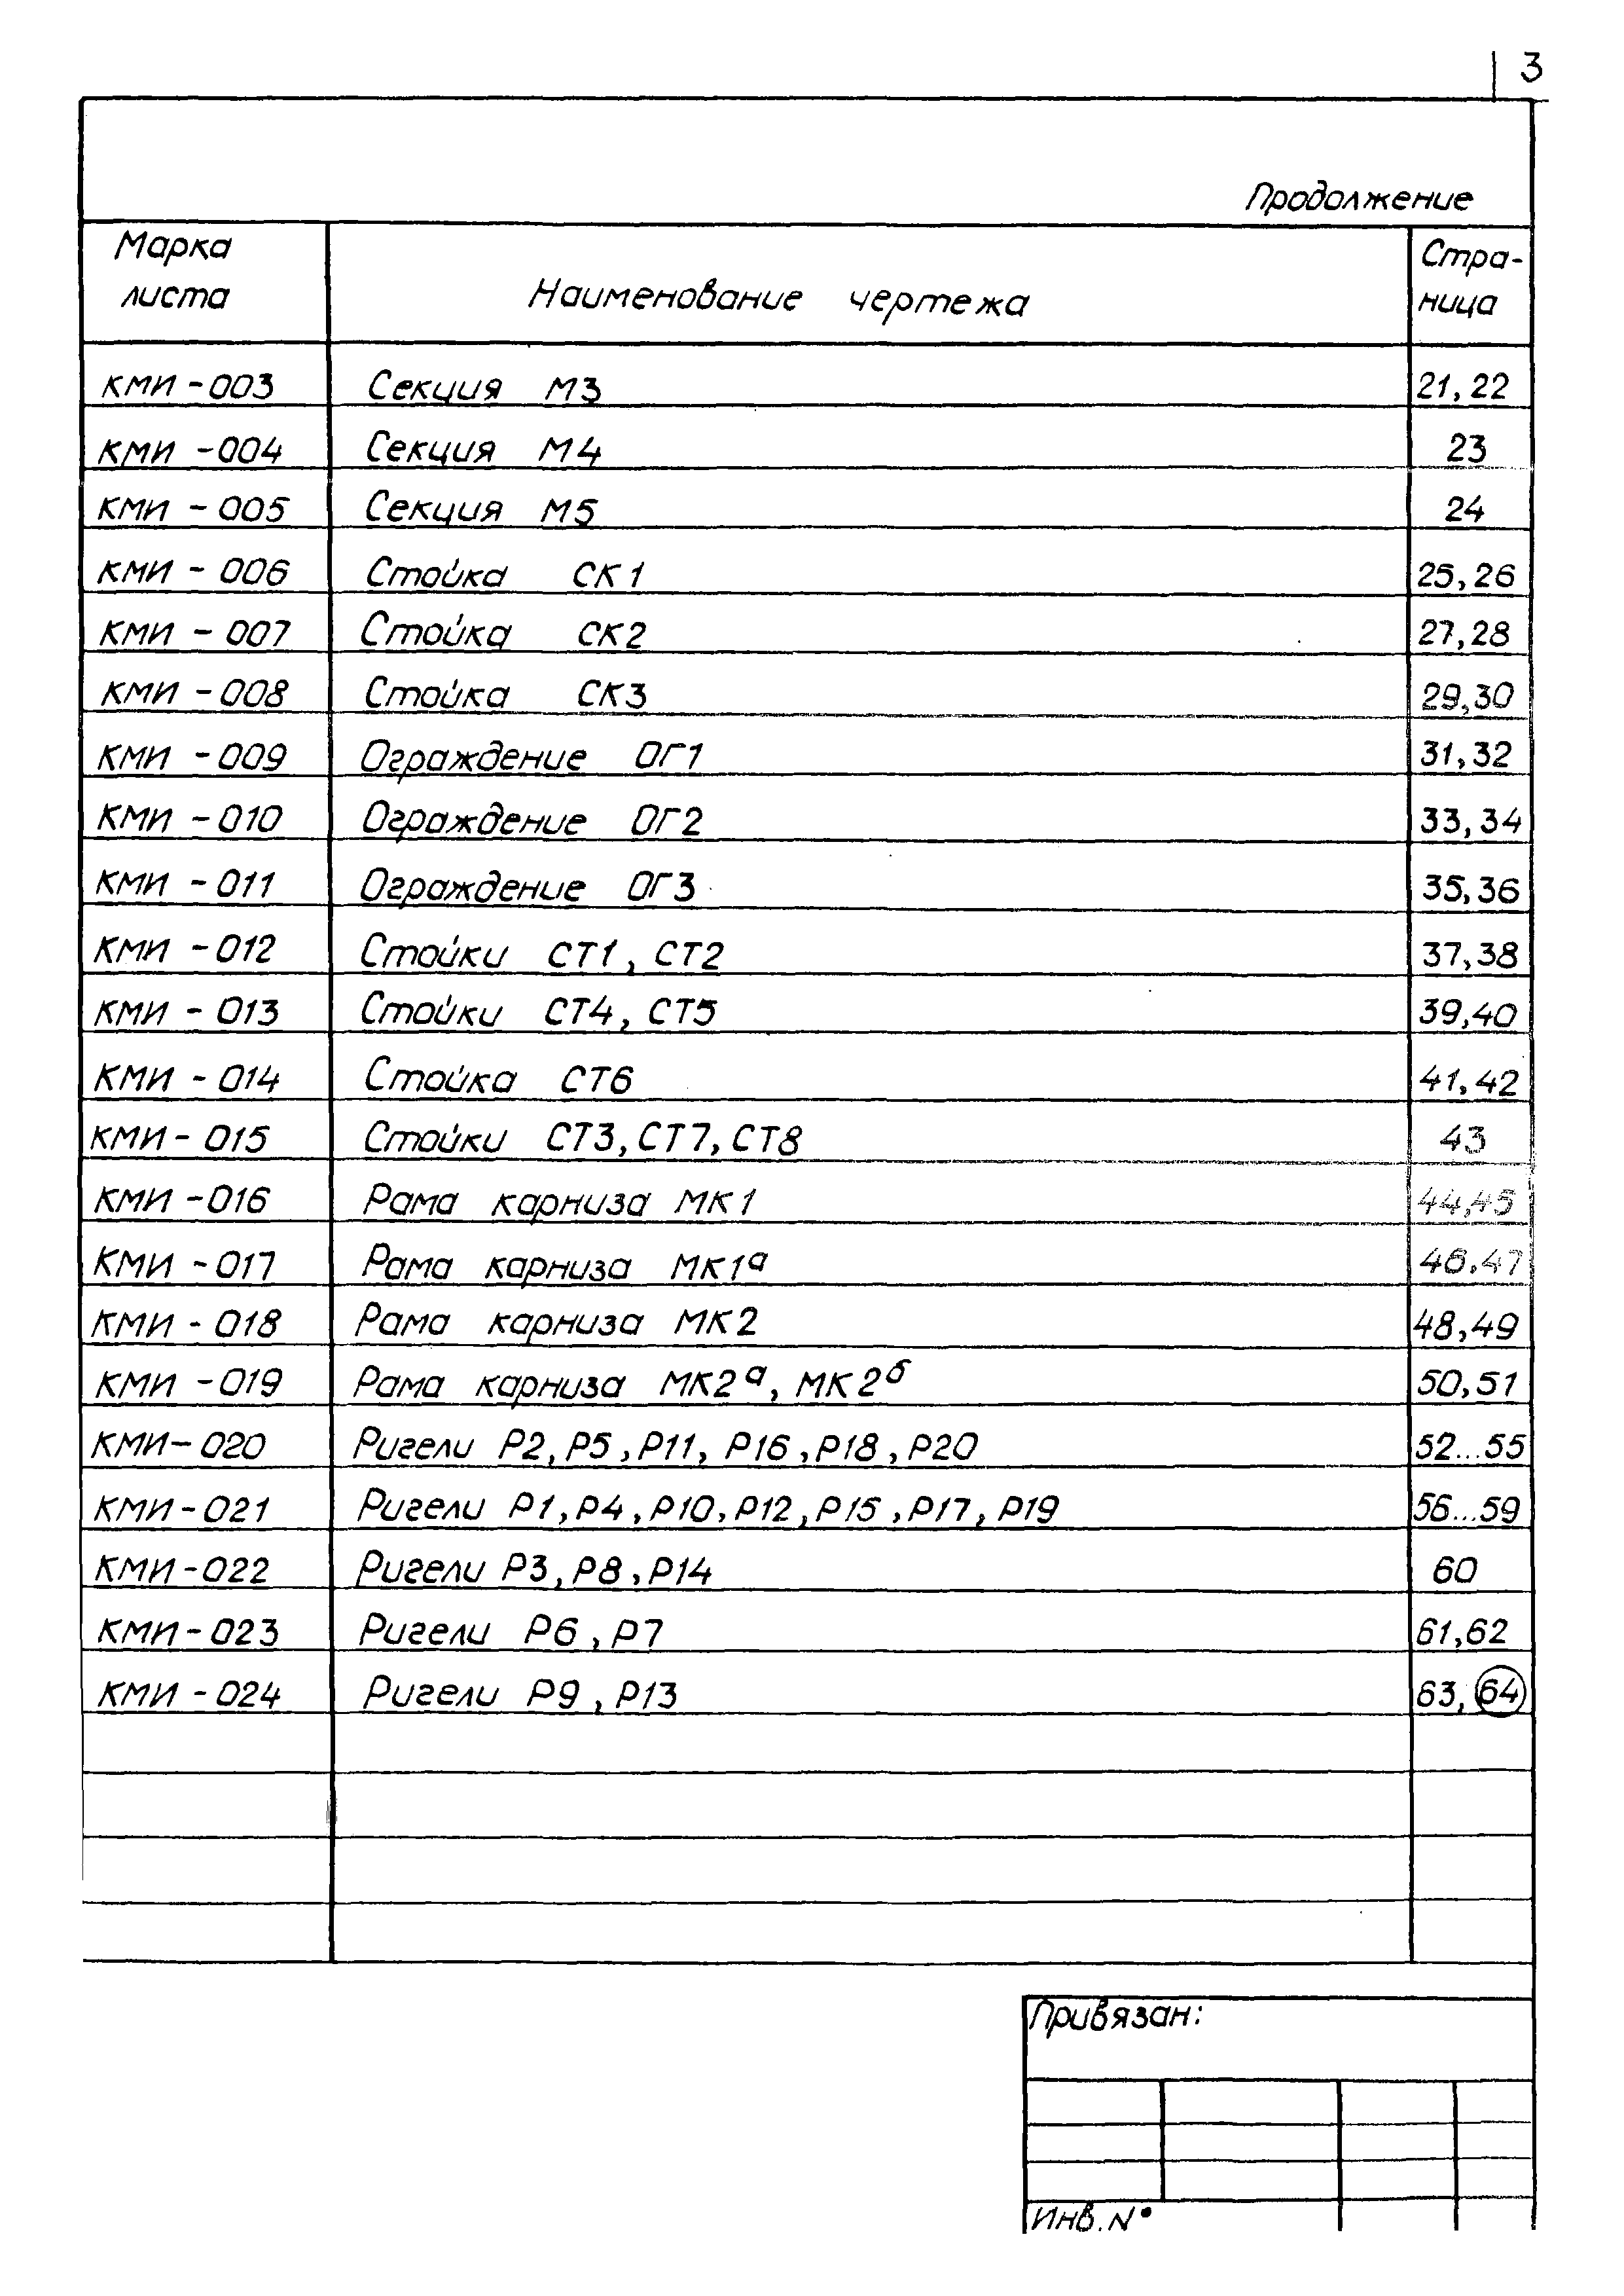 3
Продолжение
Марка листа Наименование чертежа Стра-ница
КМИ-003 Секция М3 21,22
КМИ-004 Секция М4 23
КМИ-005 Секция М5 24
КМИ-006 Стойка СК1 25,26
КМИ-007 Стойка СК2 27,28
КМИ-008 Стойка СК3 29,30
КМИ-009 Ограждение ОГ1 31,32
КМИ-010 Ограждение ОГ2 33,34
КМИ-011 Ограждение ОГ3 35,36
КМИ-012 Стойки СТ1, СТ2 37,38
КМИ-013 Стойки СТ4, СТ5 39,40
КМИ-014 Стойка СТ6 41,42
КМИ-015 Стойки СТ3, СТ7, СТ8 43
КМИ-016 Рама карниза МК1 44,45
КМИ-017 Рама карниза МК1а 46,47
КМИ-018 Рама карниза МК2 48,49
КМИ-019 Рама карниза МК2а, МК2б 50,51
КМИ-020 Ригели Р2, Р5, Р11, Р16, Р18, Р20 52...55
КМИ-021 Ригели Р1, Р4, Р10, Р12, Р15, Р17, Р19 56...59
КМИ-022 Ригели Р3, Р8, Р14 60
КМИ-023 Ригели Р6, Р7 61,62
КМИ-024 Ригели Р9, Р13 63, 64
Привязан:
Инв. N°